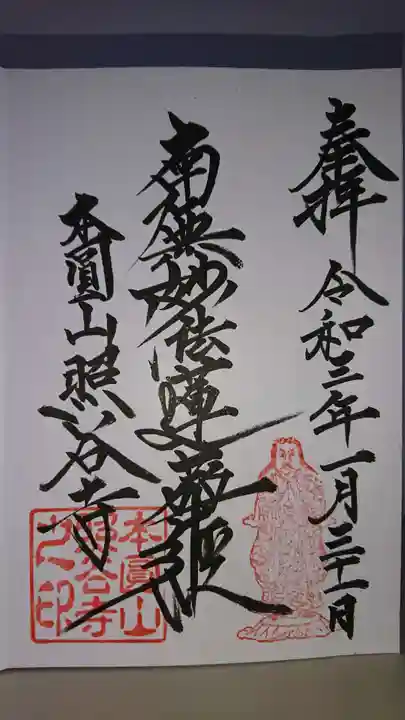 奉拝 令和三年一月三十一日
南無妙法蓮華経
本圓山照谷寺
本圓山
照谷寺
之印